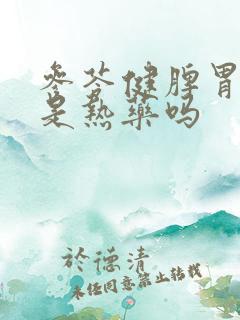 参苓健脾胃
是热药吗
於德清
未经同意禁止转载